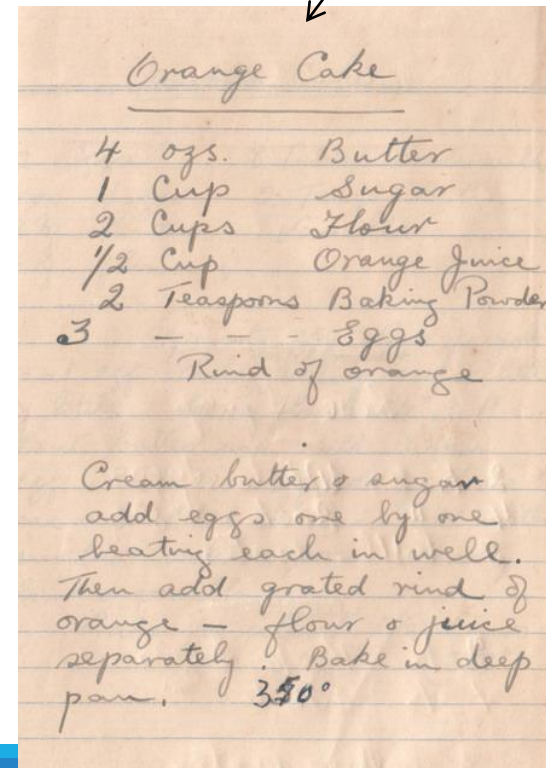 Orange Cake
4 ozs. Butter
1 Cup Sugar
2 Cups Flour
1/2 Cup Orange Juice
2 Teaspoons Baking Powder
3 - - - Eggs
Rind of orange
Cream butter & sugar
add eggs one by one
beating each in well.
Then add grated rind of
orange - flour & juice
separately. Bake in deep
pan. 350°